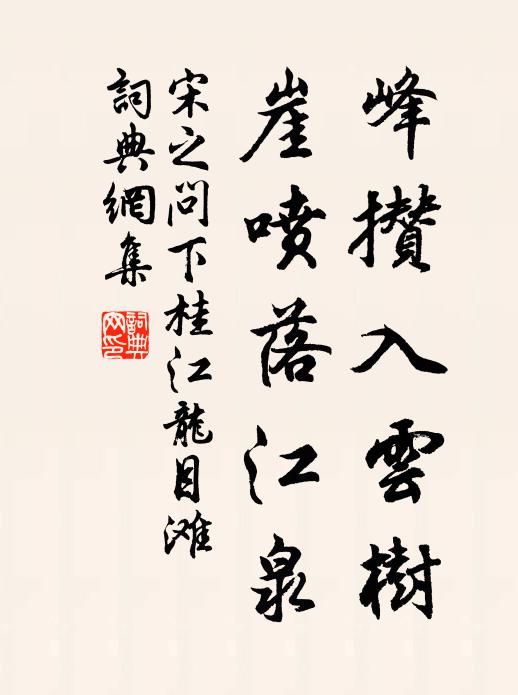 峰攢入雲樹
崖噴落江泉
宋之问下桂江龍目滩
詞典網集
詞典网印